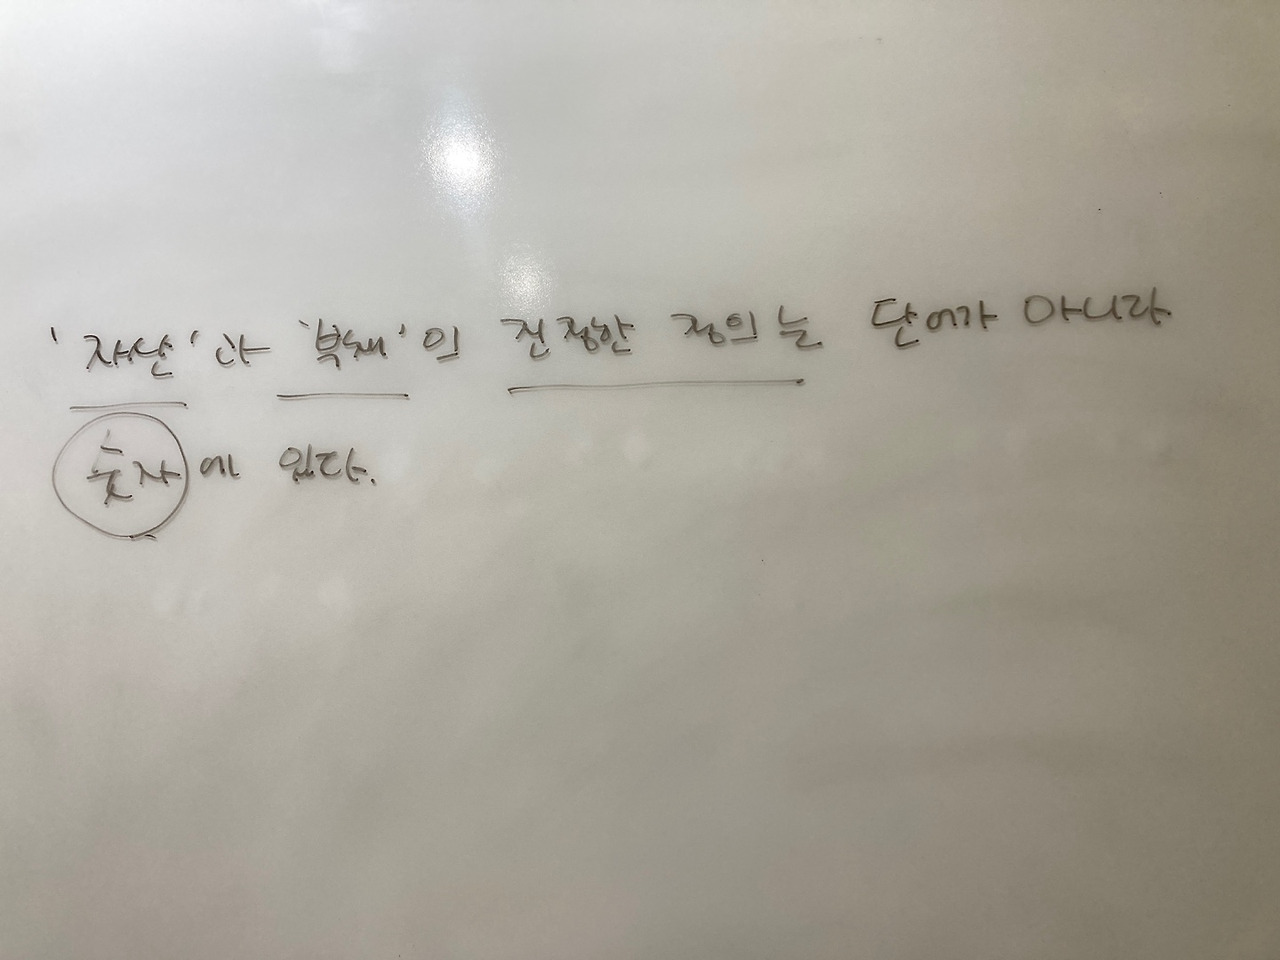 '자산'과 '부채'의 진정한 정의는 단어가 아니라
숫자에 있다.